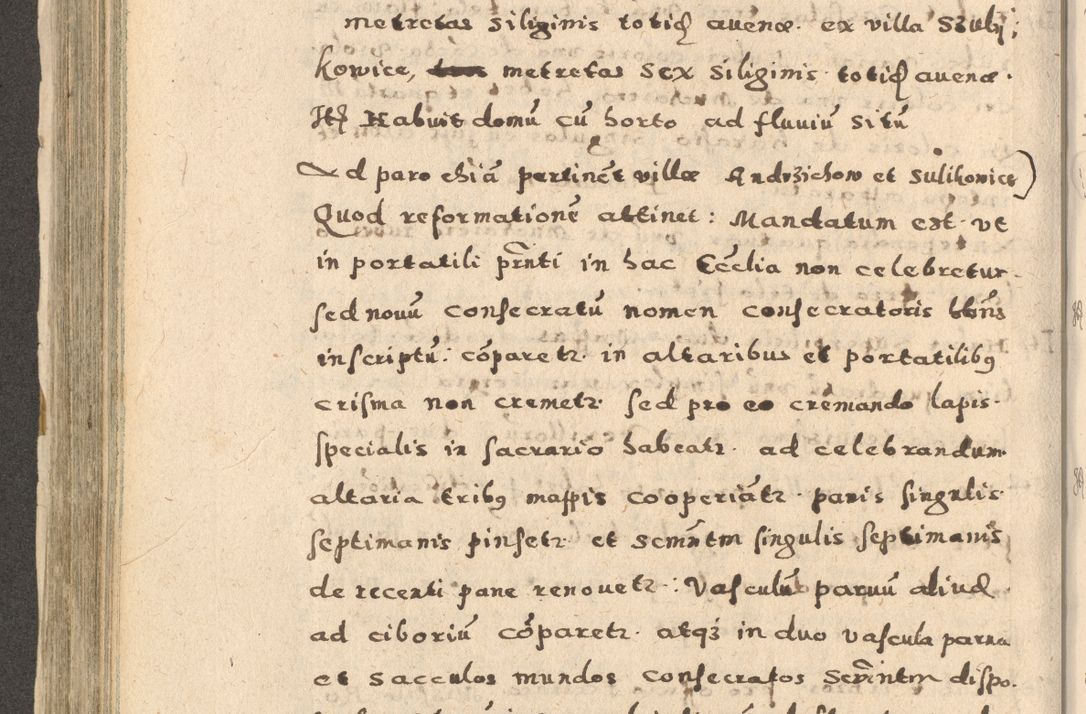 metretas siliginis totiḋ auenæ. ex villa Szulij;
kowice, metretas sex siliginis totiḋ auenæ.
Itḋ Habuit domū cū horto ad fluuiū situ̅
Ad parochiā pertinēt villæ Andrzichow et Sulikowice)
Quod reformationē attinet: Mandatum est. vt
in portatili pr̅nti in hac Eccl̅ia non celebretur.
sed nouū consecratū nomen consecratoris
inscriptū: cōparetr. in altaribus et portatilibꝯ
crisma non cremetr. sed pro eo cremando lapis.
specialis in sacrario habeatr. ad celebrandum
altaria tribꝯ mappis cooperiātr. panis singulis
septimanis pinsetr. et Scm̅ntm singulis septimanis
de recenti pane renouetr: Vasculū paruū aliud
ad ciboriū cōparetr. atqꝫ in duo vascula parua
et sacculos mundos consecratos Scr̅mntm dispo.